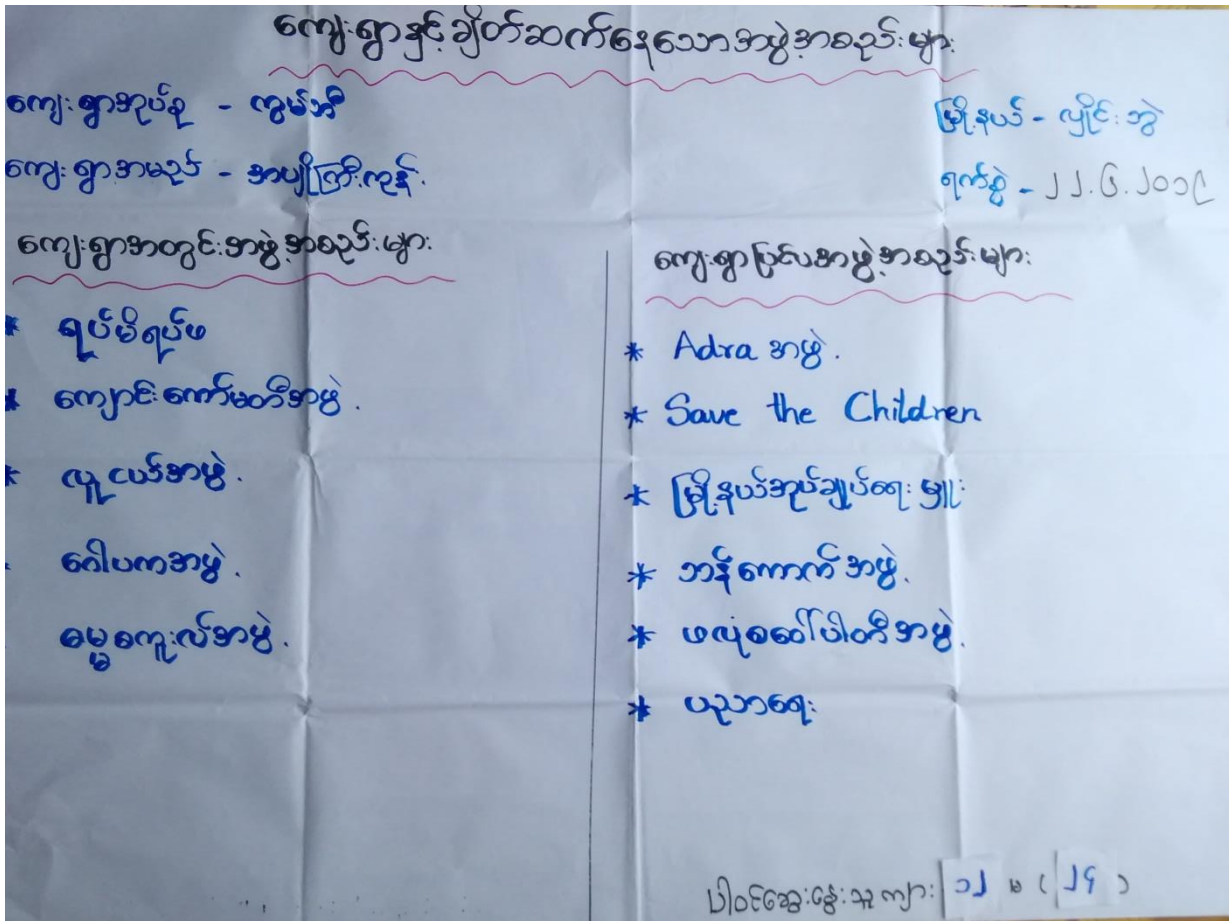 ကျေးရွာနှင့်ချိတ်ဆက်နေသောအဖွဲ့အစည်းများ
ကျေးရွာအုပ်စု - ကွမ်ဘီ
မြို့နယ် - လှိုင်းဘွဲ
ကျေးရွာအမည် - အပျိုကြီးကုန်း
ရက်စွဲ - ၂၂.၆.၂၀၁၉
ကျေးရွာအတွင်းအဖွဲ့အစည်းများ
* ရပ်မိရပ်ဖ
* ကျောင်းကော်မတီအဖွဲ့.
* လူငယ်အဖွဲ့.
ဂေါပကအဖွဲ့.
ဓမ္မစကူးလ်အဖွဲ့.
ကျေးရွာပြင်ပအဖွဲ့အစည်းများ
* Adra အဖွဲ့.
* Save the Children
* မြို့နယ်အုပ်ချုပ်ရေးမှူး
* ဘန်ကောက်အဖွဲ့.
* ဖလုံစဝေါ်ပါတီအဖွဲ့.
* ပညာရေး
ပါဝင်ဆွေးနွေးသူ ကျား ၁၂ မ ( ၂၄ )